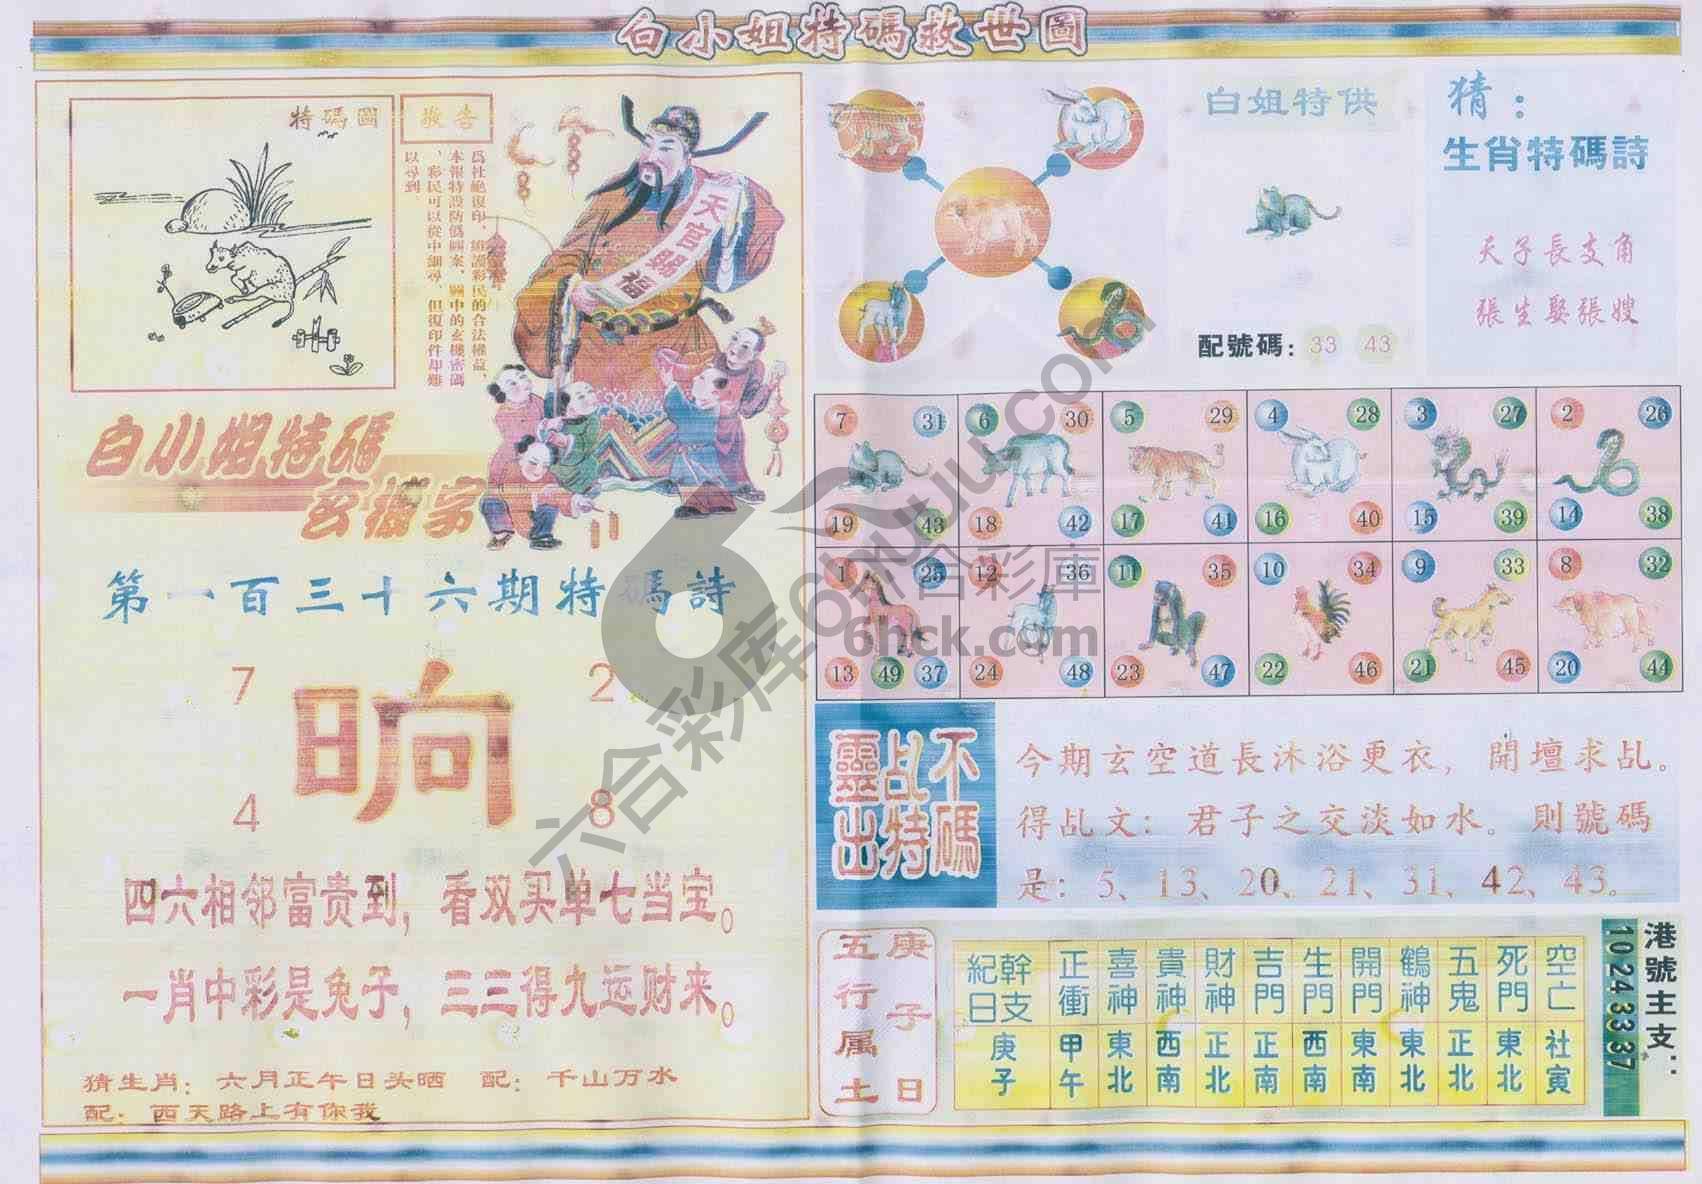 白小姐特碼救世圖
特碼圖
敬告
爲杜絶復印，維護彩民的合法權益，
本報特設防僞圖案，圖中的玄機密碼
，彩民可以從中細尋，但復印件却難
以尋到。
天官賜福
白小姐特碼
玄機字
第一百三十六期特碼詩
7 2
晌
4 8
四六相邻富贵到，看双买单七当宝。
一肖中彩是兔子，三三得九运财来。
猜生肖：六月正午日头晒 配：千山万水
配：西天路上有你我
白姐特供
配號碼：33 43
猜：
生肖特碼詩
天子長支角
張生娶張嫂
7 31 6 30 5 29 4 28 3 27 2 26
19 43 18 42 17 41 16 40 15 39 14 38
1 25 12 36 11 35 10 34 9 33 8 32
13 49 37 24 48 23 47 22 46 21 45 20 44
不碼
乩特
靈出
今期玄空道長沐浴更衣，開壇求乩。
得乩文：君子之交淡如水。則號碼
是：5、13、20、21、31、42、43。
庚子日
五行属土
幹支
紀日
正衝 喜神 貴神 財神 吉門 生門 開門 鶴神 五鬼 死門 空亡
庚子 甲午 東北 西南 正北 正南 西南 東南 東北 正北 東北 社寅
港號主支：
10 24 33 37
六合彩库 6HCTUKU.com
六合彩庫
6hck.com